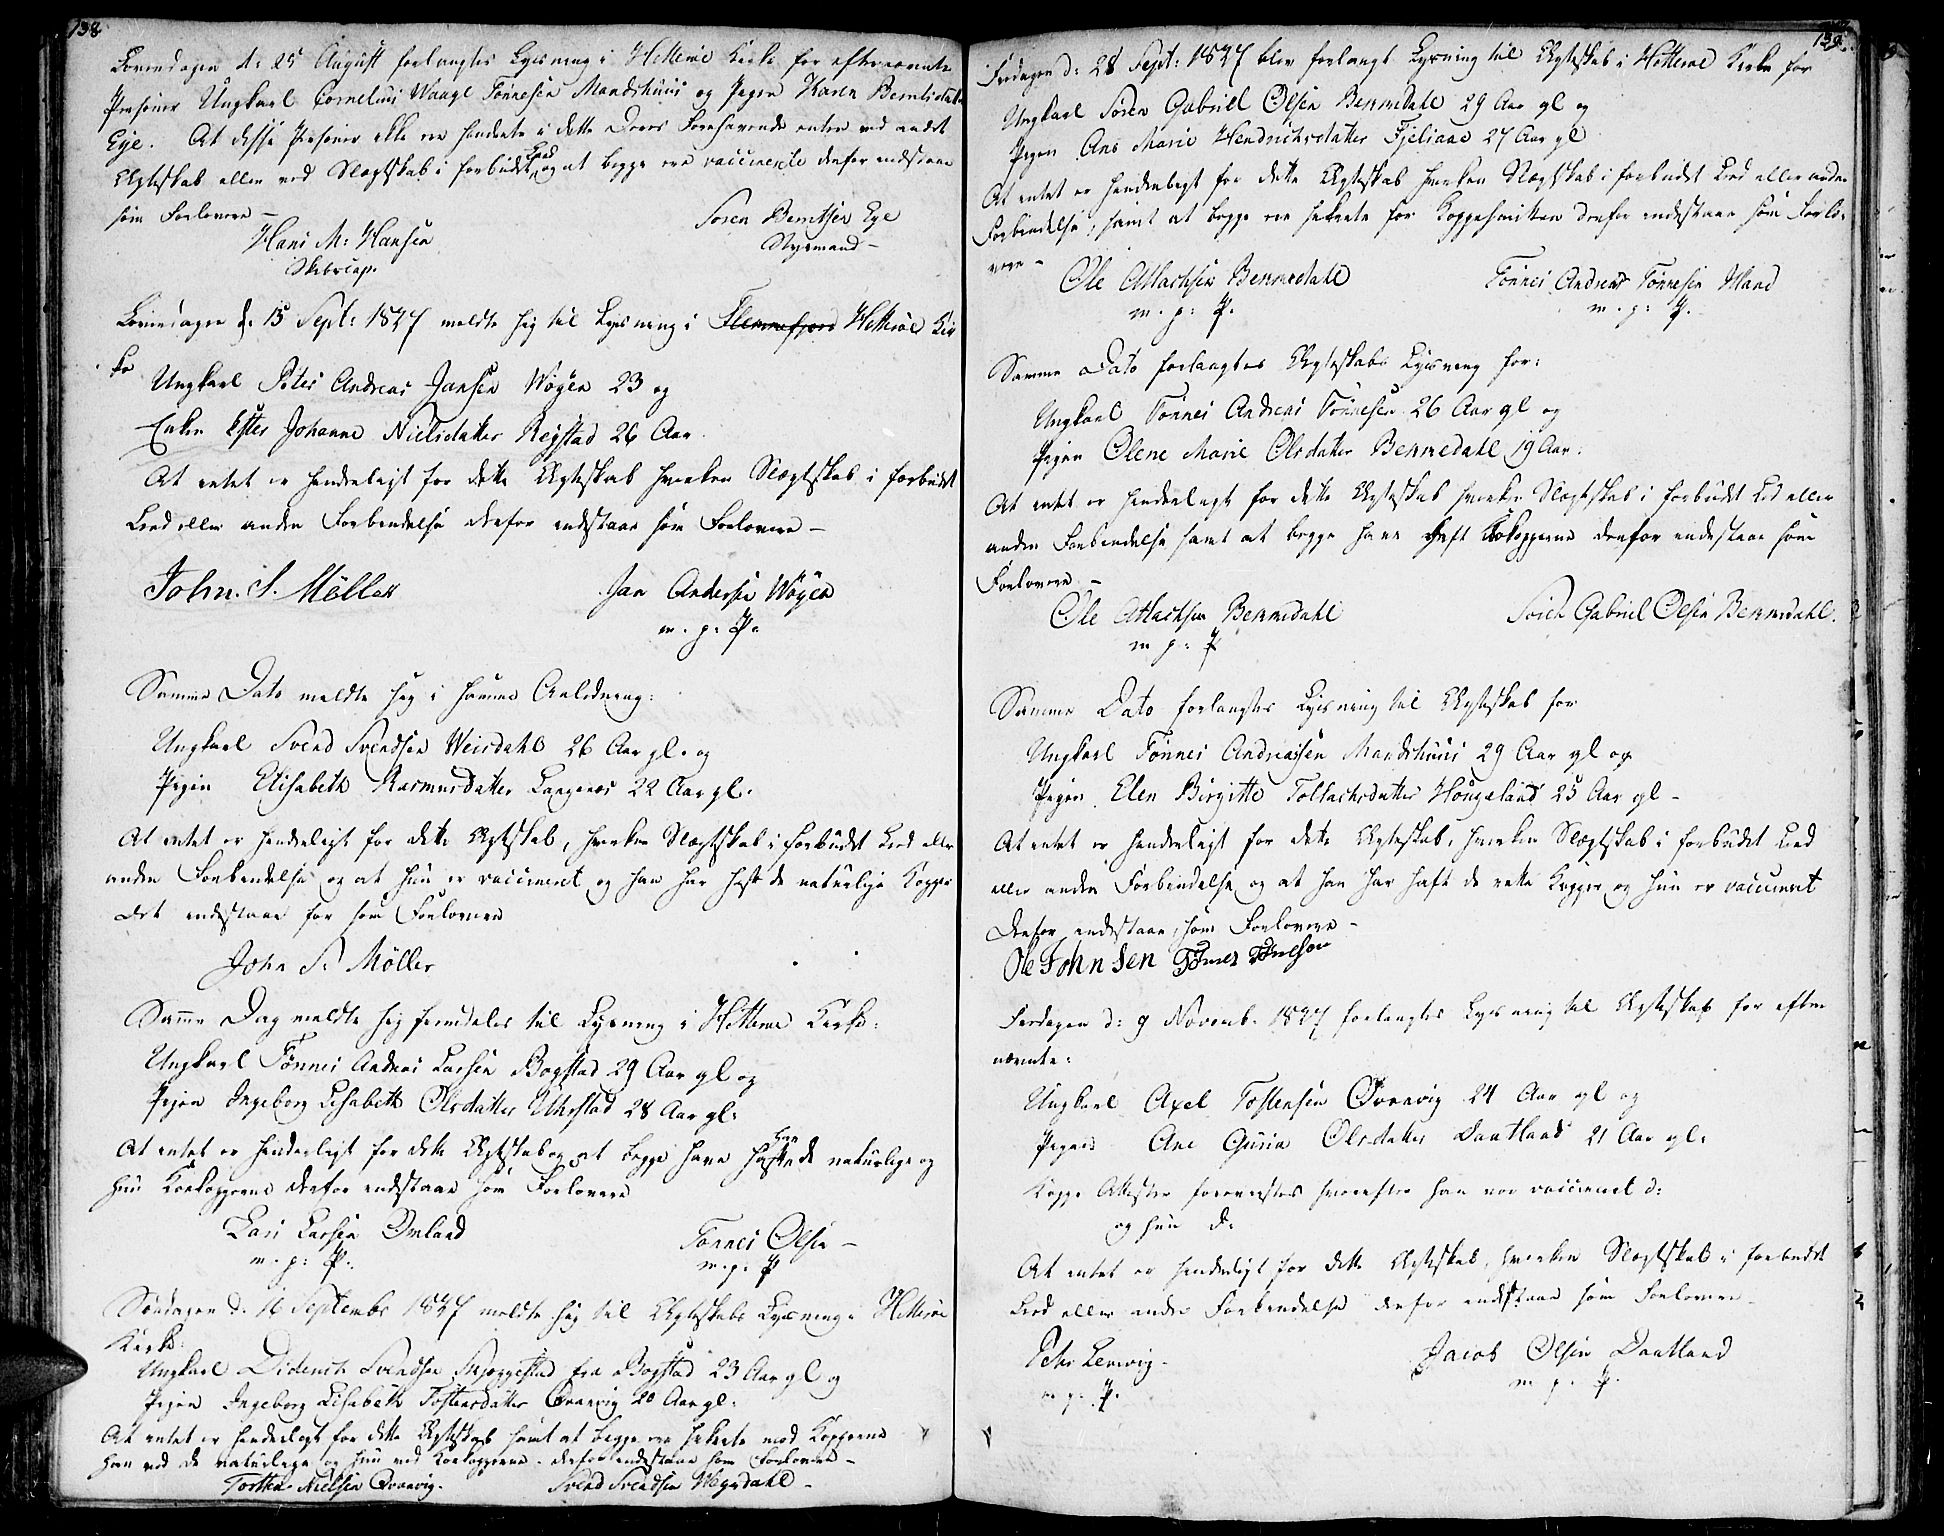 138
Løverdagen d: 25 August forlangtes Lysning i Hitterøe Kirke for efternævnte
Personer Ungkarl Cornelius Waage Tønnesen Mandshuus og Pigen Karen Berntsdatter
Eye. At disse Personer ikke ere hindrede i dette Deres Forehavende enten ved andet
Ægteskab eller ved Slægtskab i forbudet Leed og at begge ere vaccinerte derfor indestaae
som Forlovere –
Hans M: Hansen
Skibscap.
Søren Berntsen Eye
Styrmand –
Løverdagen d: 15 Sept: 1827 meldte sig til Lysning i Flekkefjord Hitterøe Kir
ke
Ungkarl Peter Andreas Jansen Wøyen 23 og
Enken Ester Johanne Nielsdatter Regstad 26 Aar.
At intet er hinderligt for dette Ægteskab hverken Slægtskab i forbudet
Leed eller anden Forbindelse derfor indestaae som Forlovere –
John. S. Möller
Jan Andersen Wøyen
m. p: P.
Samme Dato meldte sig i samme Anledning:
Ungkarl Svend Svendsen Weisdahl 26 Aar gl. og
Pigen Elisabeth Rasmusdatter Langenes 22 Aar gl.
At intet er hinderligt for dette Ægteskab, hverken Slægtskab i forbudet Leed eller
anden Forbindelse og at hun er vaccineret og han har haft de naturlige Kopper
det indestaae for som Forlovere
John S. Möller
Samme Dag meldte sig fremdeles til Lysning i Hitterøe Kirke:
Ungkarl Tønnes Andreas Larsen Bogstad 29 Aar gl og
Pigen Ingeborg Lisabeth Olsdatter Uhrstad 28 Aar gl:
At intet er hinderligt for dette Ægteskab og at begge have haft han de naturlige og
hun Koekopperne derfor indestaae som Forlovere
Lars Larsen Omland
m. p: P.
Tønnes Olsen –
m. p: P
Søndagen d: 16 Septembr 1827 meldte sig til Ægteskabs Lysning i Hitterøe
Kirke:
Ungkarl Diderich Svendsen Skjeggestad fra Bogstad 23 Aar gl og
Pigen Ingeborg Lisabeth Tostensdatter Qvanvig 20 Aar gl:
At intet er hinderligt for dette Ægteskab samt at begge ere sikrede mod Kopperne
han ved de naturlige og hun ved Koekopperne. derfor indestaae som Forlovere –
Torsten Nielsen Qvanvig.
Svend Svendsen Wegsdahl –
139.
Fredagen d: 28 Sept: 1827 blev forlangt Lysning til Ægteskab i Hitterøe Kirke for
Ungkarl Søren Gabriel Olsen Bennedahl 29 Aar gl og
Pigen Ane Marie Hendrichsdatter Fjeliaae 27 Aar gl
At intet er hinderligt for dette Ægteskab hverken Slægtskab i forbudet Leed eller anden
Forbindelse, samt at begge ere sikrede for Koppesmitten derfor indestaae som Forlo-
vere –
Ole Atlachsen Bennedahl
m. p: P.
Tønnes Andreas Tønnesen Hand
m. p: P.
Samme Dato forlangtes Ægteskabs Lysning for:
Ungkarl Tønnes Andreas Tønnesen 26 Aar gl og
Pigen Olene Marie Olsdatter Bennedahl 19 Aar.
At intet er hinderligt for dette Ægteskab hverken Slægtskab i forbudet Led eller
anden Forbindelse samt at begge have haft Koekopperne derfor indestaae som
Forlovere –
Ole Atlachsen Bennedahl
m p: P
Søren Gabriel Olsen Bennedahl.
Samme Dato forlangtes Lysning til Ægteskab for
Ungkarl Tønnes Andreassen Mandshuus 29 Aar gl og
Pigen Elen Birgitte Tollachsdatter Hougeland 25 Aar gl –
At intet er hinderligt for dette Ægteskab, hverken Slægtskab i forbudet Leed
eller anden Forbindelse og at han har haft de rette Kopper og hun er vaccineret
derfor indestaae som Forlovere –
Ole Johnsen Tønnes Tønesen
Fredagen d: 9 Novemb. 1827 forlangtes Lysning til Ægteskab for efter
nævnte:
Ungkarl Axel Tostensen Qvanvig 24 Aar gl og
Pigen Ane Guria Olsdatter Daatland 21 Aar gl:
Koppe Attester foreviistes hvorefter han var vaccineret d:
og hun d:
At intet er hinderligt for dette Ægteskab, hverken Slægtskab i forbudet
Leed eller anden Forbindelse derfor indestaae som Forlovere
Pehr Lervig –
m p. P.
Jacob Olsen Daatland
m. p. P.